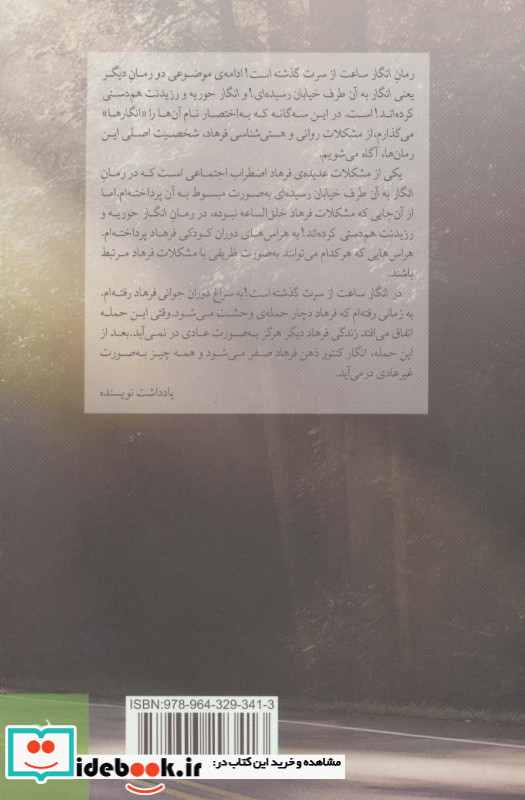 رمان انگار ساعت از سرت گذشته است! ادامه‌ی موضوعی دو رمان دیگر
یعنی انگار به آن طرف خیابان رسیده‌ای! و انگار حوریه و رزیدنت هم‌دستی
کرده‌اند! است. در این سه‌گانه که به‌اختصار نام آن‌ها را «انگارها»
می‌گذارم، از مشکلات روانی و هستی‌شناسی فرهاد، شخصیت اصلی این
رمان‌ها، آگاه می‌شویم.
یکی از مشکلات عدیده‌ی فرهاد اضطراب اجتماعی است که در رمان
انگار به آن طرف خیابان رسیده‌ای به‌صورت مبسوط به آن پرداخته‌ام. اما
از آن‌جایی که مشکلات فرهاد خلق‌الساعه نبوده، در رمان انگار حوریه و
رزیدنت هم‌دستی کرده‌اند! به هراس‌های دوران کودکی فرهاد پرداخته‌ام.
هراس‌هایی که هرکدام می‌توانند به‌صورت ظریفی با مشکلات فرهاد مرتبط
باشند.
در انگار ساعت از سرت گذشته است! به سراغ دوران جوانی فرهاد رفته‌ام.
به زمانی رفته‌ام که فرهاد دچار حمله‌ی وحشت می‌شود. وقتی این حمله
اتفاق می‌افتد زندگی فرهاد دیگر هرگز به‌صورت عادی در نمی‌آید. بعد از
این حمله، انگار کنتور ذهن فرهاد صفر می‌شود و همه چیز به‌صورت
غیرعادی در می‌آید.
یادداشت نویسنده
ISBN:978-964-329-341-3
مشاهده و خرید این کتاب در:
idebook.ir